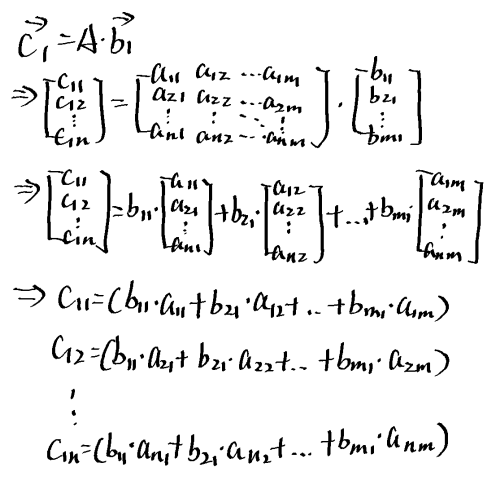 \vec{c_1} = A \cdot \vec{b_1}
⇒ \begin{bmatrix} c_{11} \\ c_{12} \\ \vdots \\ c_{1n} \end{bmatrix} = \begin{bmatrix} a_{11} & a_{12} & \cdots & a_{1m} \\ a_{21} & a_{22} & \cdots & a_{2m} \\ \vdots & \vdots & \ddots & \vdots \\ a_{n1} & a_{n2} & \cdots & a_{nm} \end{bmatrix} \cdot \begin{bmatrix} b_{11} \\ b_{21} \\ \vdots \\ b_{m1} \end{bmatrix}
⇒ \begin{bmatrix} c_{11} \\ c_{12} \\ \vdots \\ c_{1n} \end{bmatrix} = b_{11} \cdot \begin{bmatrix} a_{11} \\ a_{21} \\ \vdots \\ a_{n1} \end{bmatrix} + b_{21} \cdot \begin{bmatrix} a_{12} \\ a_{22} \\ \vdots \\ a_{n2} \end{bmatrix} + \ldots + b_{m1} \cdot \begin{bmatrix} a_{1m} \\ a_{2m} \\ \vdots \\ a_{nm} \end{bmatrix}
⇒ c_{11} = (b_{11} \cdot a_{11} + b_{21} \cdot a_{12} + \ldots + b_{m1} \cdot a_{1m})
c_{12} = (b_{11} \cdot a_{21} + b_{21} \cdot a_{22} + \ldots + b_{m1} \cdot a_{2m})
\vdots
c_{1n} = (b_{11} \cdot a_{n1} + b_{21} \cdot a_{n2} + \ldots + b_{m1} \cdot a_{nm})